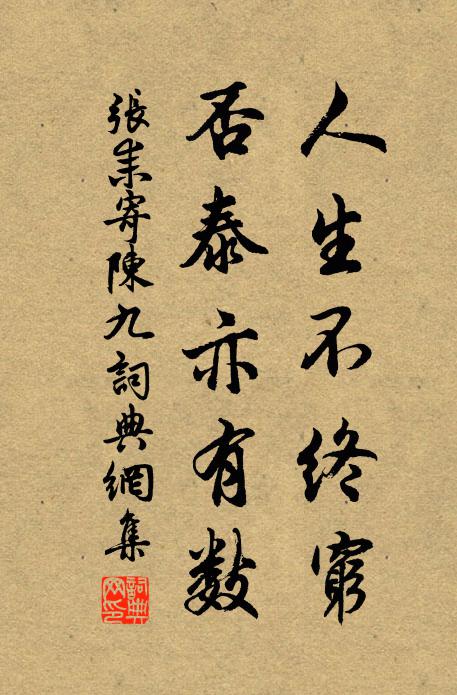 人生不终穷
否泰亦有数
張耒寄陳九詞典網集
詞典网印